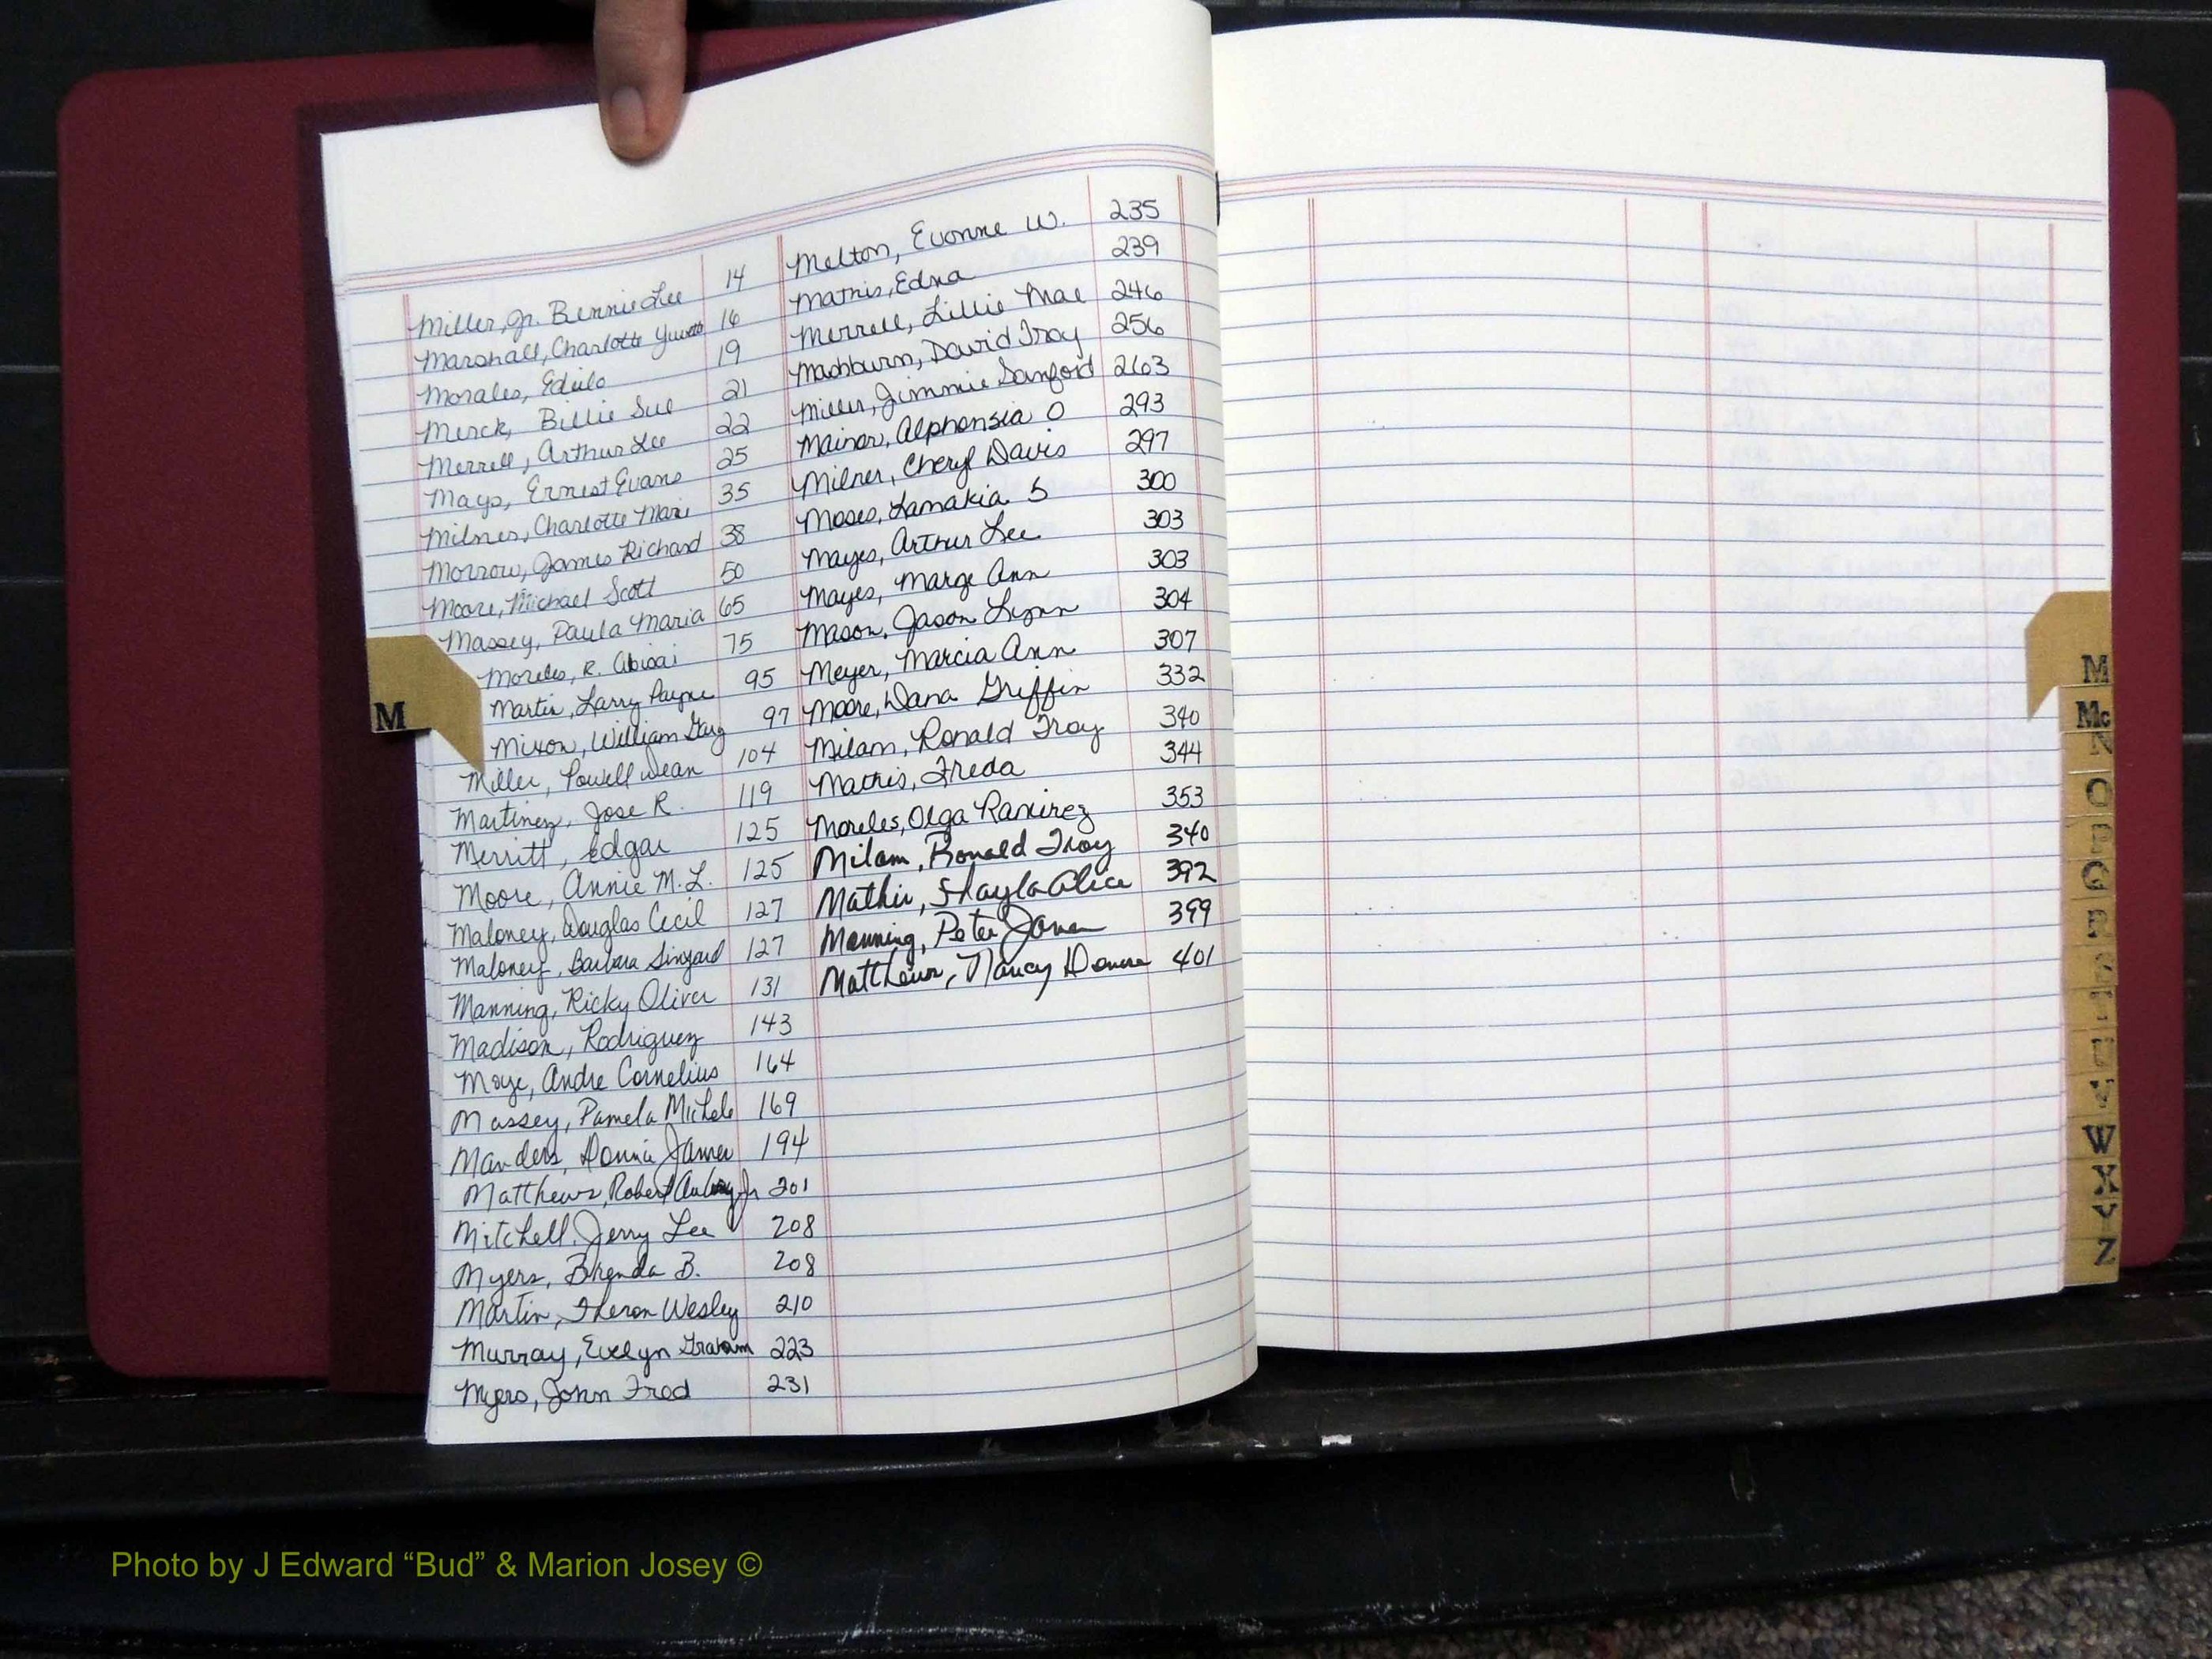 Miller, Jr. Bennie Lee 14
Marshall, Charlotte Yvette 16
Morales, Edulo 19
Merck, Billie Sue 21
Merrell, Arthur Lee 22
Mays, Ernest Evans 25
Milner, Charlotte Marie 35
Morrow, James Richard 38
Moore, Michael Scott 50
Massey, Paula Maria 65
Moreles, R. Abisai 75
Martin, Larry Payne 95
Mixon, William Gary 97
Miller, Powell Dean 104
Martinez, Jose R. 119
Merritt, Edgar 125
Moore, Annie M. L. 125
Maloney, Douglas Cecil 127
Maloney, Barbara Singard 127
Manning, Ricky Oliver 131
Madison, Rodriguez 143
Moye, Andre Cornelius 164
Massey, Pamela Michele 169
Manders, Donnie James 194
Matthews, Robert Aubrey Jr 201
Mitchell, Jerry Lee 208
Myers, Brenda B. 208
Martin, Theron Wesley 210
Murray, Evelyn Graham 223
Myers, John Fred 231
Melton, Evonne W. 235
Mathis, Edna 239
Merrell, Lillie Mae 246
Mashburn, David Troy 256
Miller, Jimmie Sanford 263
Mainor, Alphonsia O 293
Milner, Cheryl Davis 297
Moses, Lamakia S 300
Mayes, Arthur Lee 303
Mayes, Marge Ann 303
Mason, Jason Lynn 304
Meyer, Marcia Ann 307
Moore, Dana Griffin 332
Milam, Ronald Troy 340
Mathis, Freda 344
Moreles, Olga Ramirez 353
Milam, Ronald Troy 340
Mathis, Shayla Alice 392
Manning, Peter James 399
Matthews, Nancy Donna 401
M
M
Mc
N
O
P
Q
R
S
T
U
V
W
X
Y
Z
Photo by J Edward “Bud” & Marion Josey ©